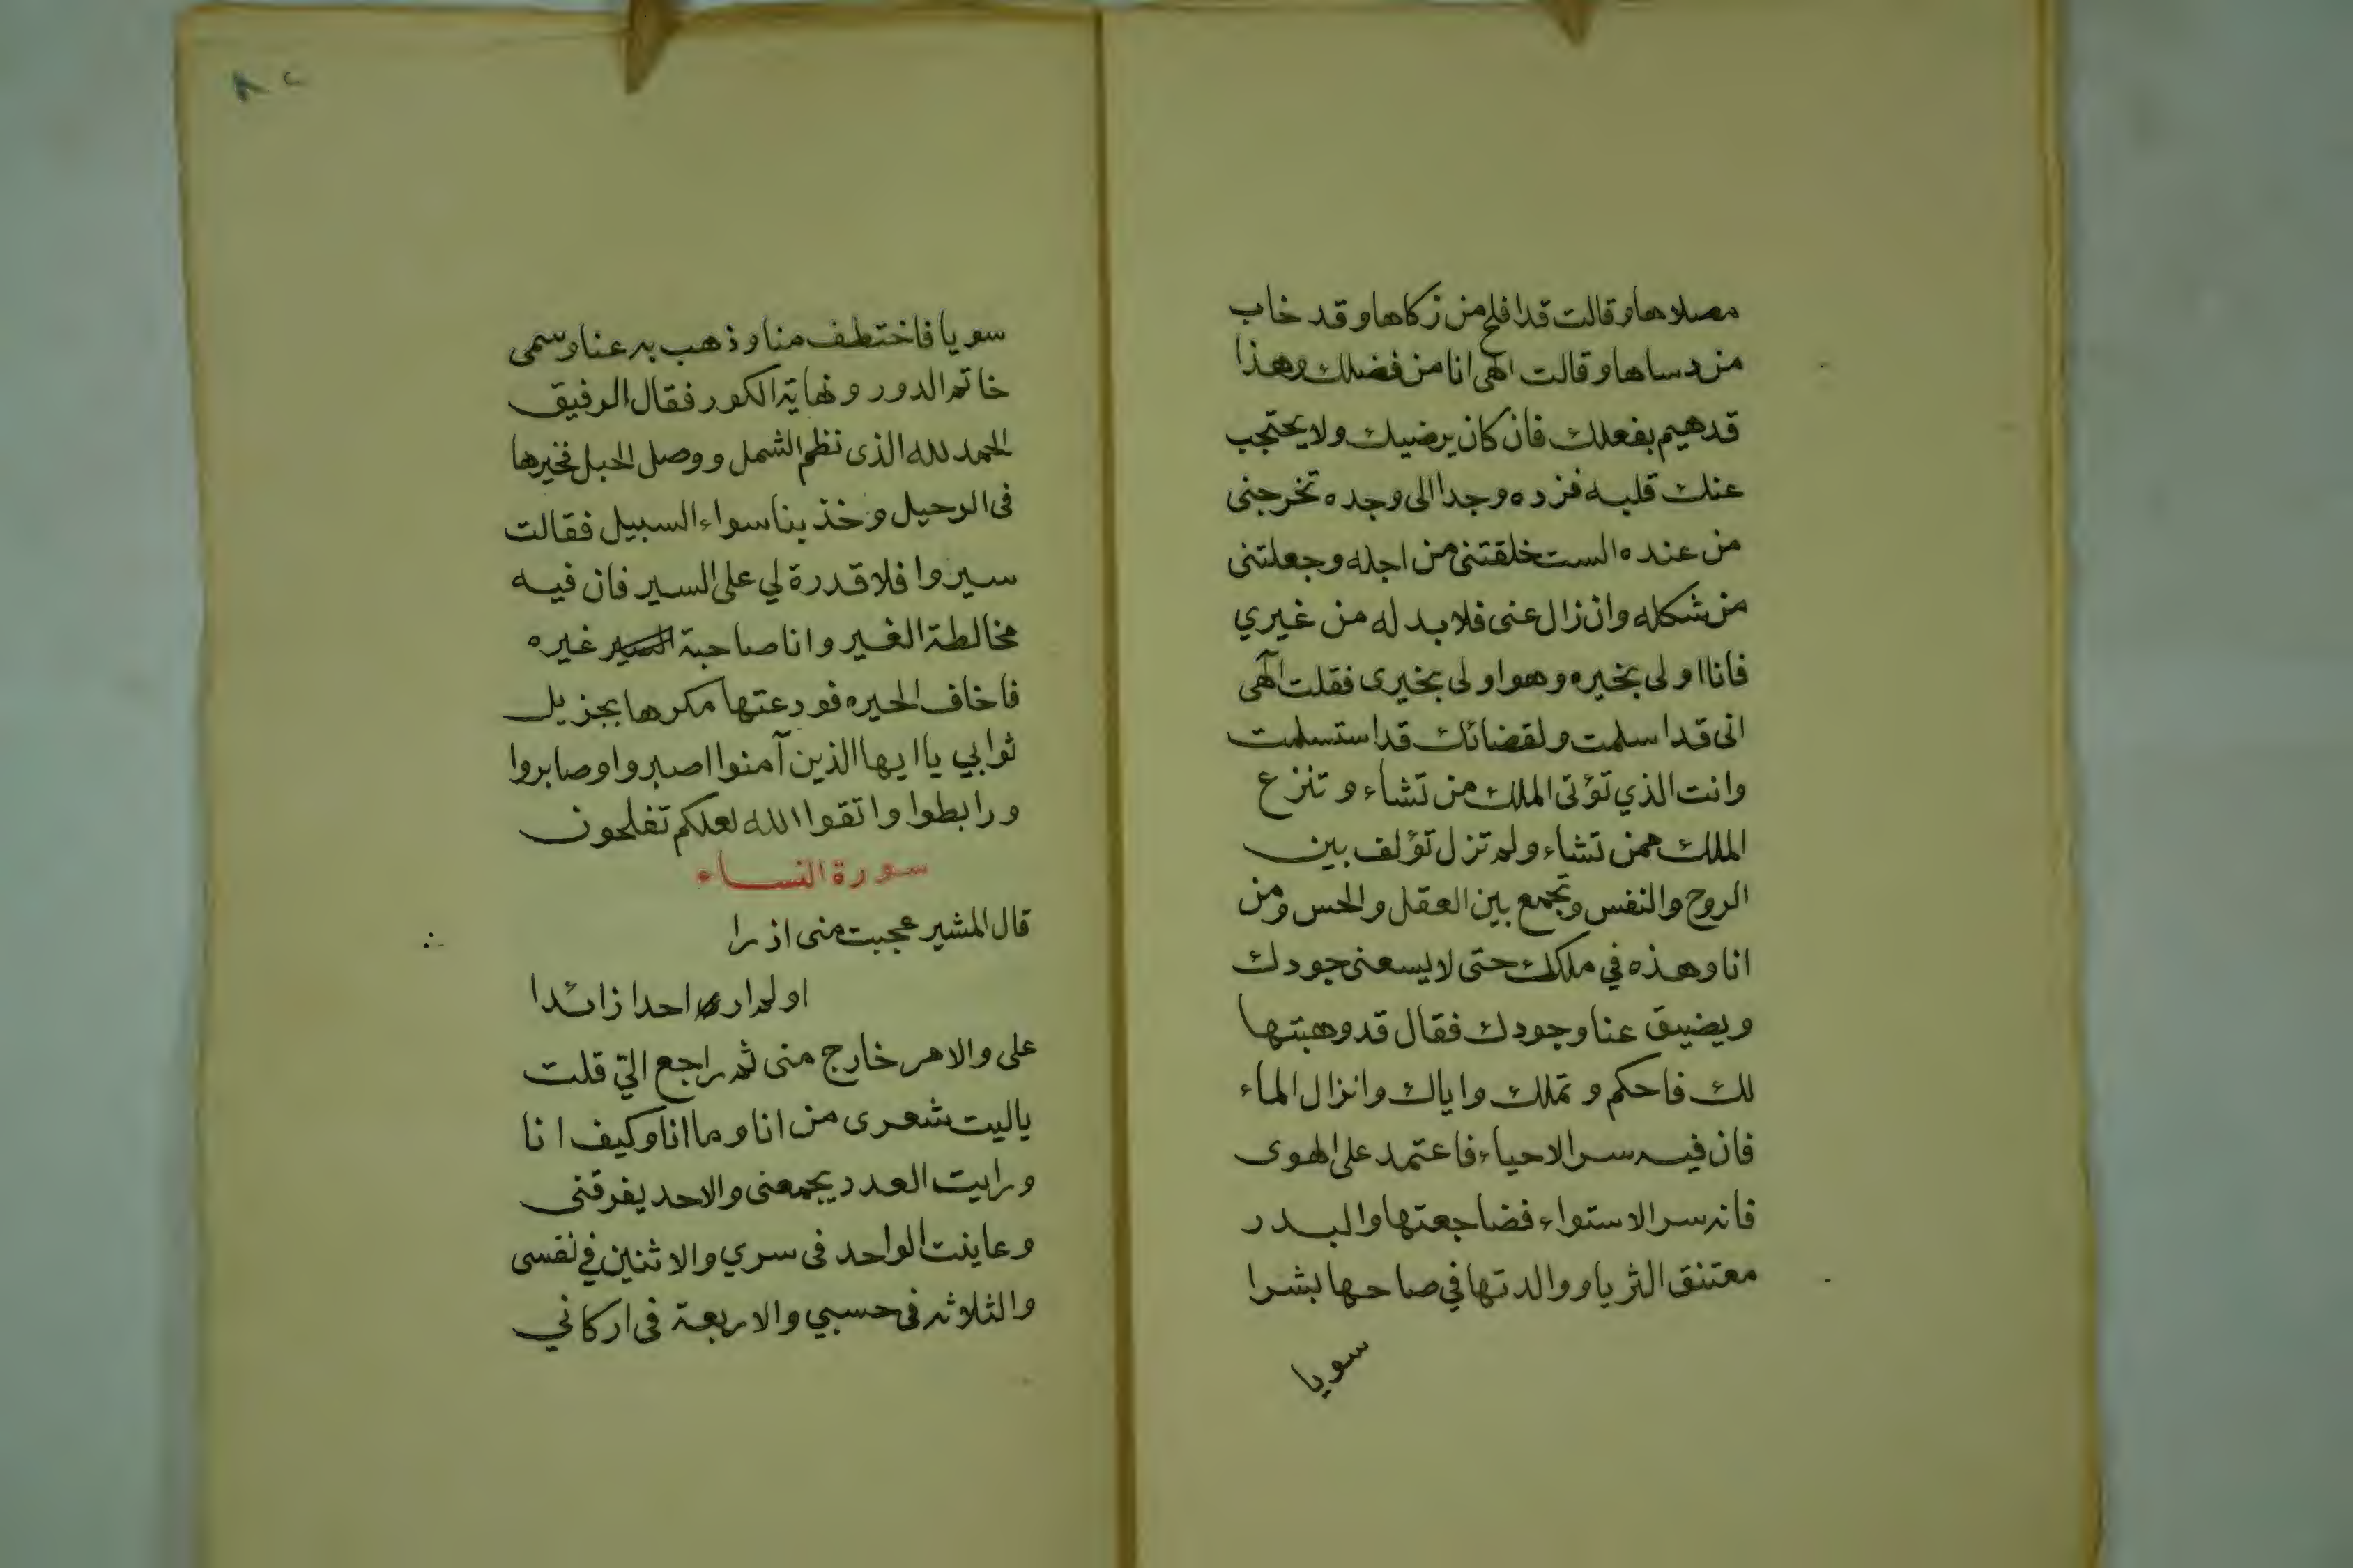 مصلاها وقالت قد افلح من زكاها وقد خاب
من دساها وقالت الهى انا من فضلك وهذا
قد هيم بفعلك فان كان يرضيك ولا يحتجب
عنك قلبه فزده وجدا الى وجده تخرجنى
من عنده الست خلقتنى من اجله وجعلتنى
من شكله وان زال عنى فلا بد له من غيري
فانا اولى بخيره وهو اولى بخيرى فقلت الٓهى
انى قد اسلمت ولقضائك قد استسلمت
وانت الذي تؤتى الملك من تشاء وتنزع
الملك ممن تشاء ولم تزل تؤلف بين
الروح والنفس وتجمع بين العقل والحس ومن
انا وهذه في ملكك حتى لا يسعنى جودك
ويضيق عنا وجودك فقال قد وهبتها
لك فاحكم وتملك واياك وانزال الماء
فان فيه سر الاحياء فاعتمد على الهوى
فانه سر الاستواء فضاجعتها والبدر
معتنق الثريا ووالدتها في صاحها بشرا
سويا
٨٢
سويا فاختطف منا وذهب به عنا وسمى
خاتم الدور ونهاية الكور فقال الرفيق
الحمد لله الذى نظم الشمل ووصل الحبل فخيرها
فى الرحيل وخذ بنا سواء السبيل فقالت
سيروا فلا قدرة لي على السير فان فيه
مخالطة الغير وانا صاحبة غيره
فاخاف الحيره فودعتها مكرها بجزيل
ثوابي يا ايها الذين آمنوا اصبروا وصابروا
ورابطوا واتقوا الله لعلكم تفلحون
سورة النساء
قال المشير عجبت منى اذ را
او لم ار احدا زائدا
على والامر خارج منى ثم راجع الي قلت
ياليت شعرى من انا وما انا وكيف انا
ورايت العدد يجمعنى والاحد يفرقنى
وعاينت الواحد فى سري والاثنين في نفسى
والثلاثه فى حسبي والاربعة فى اركاني